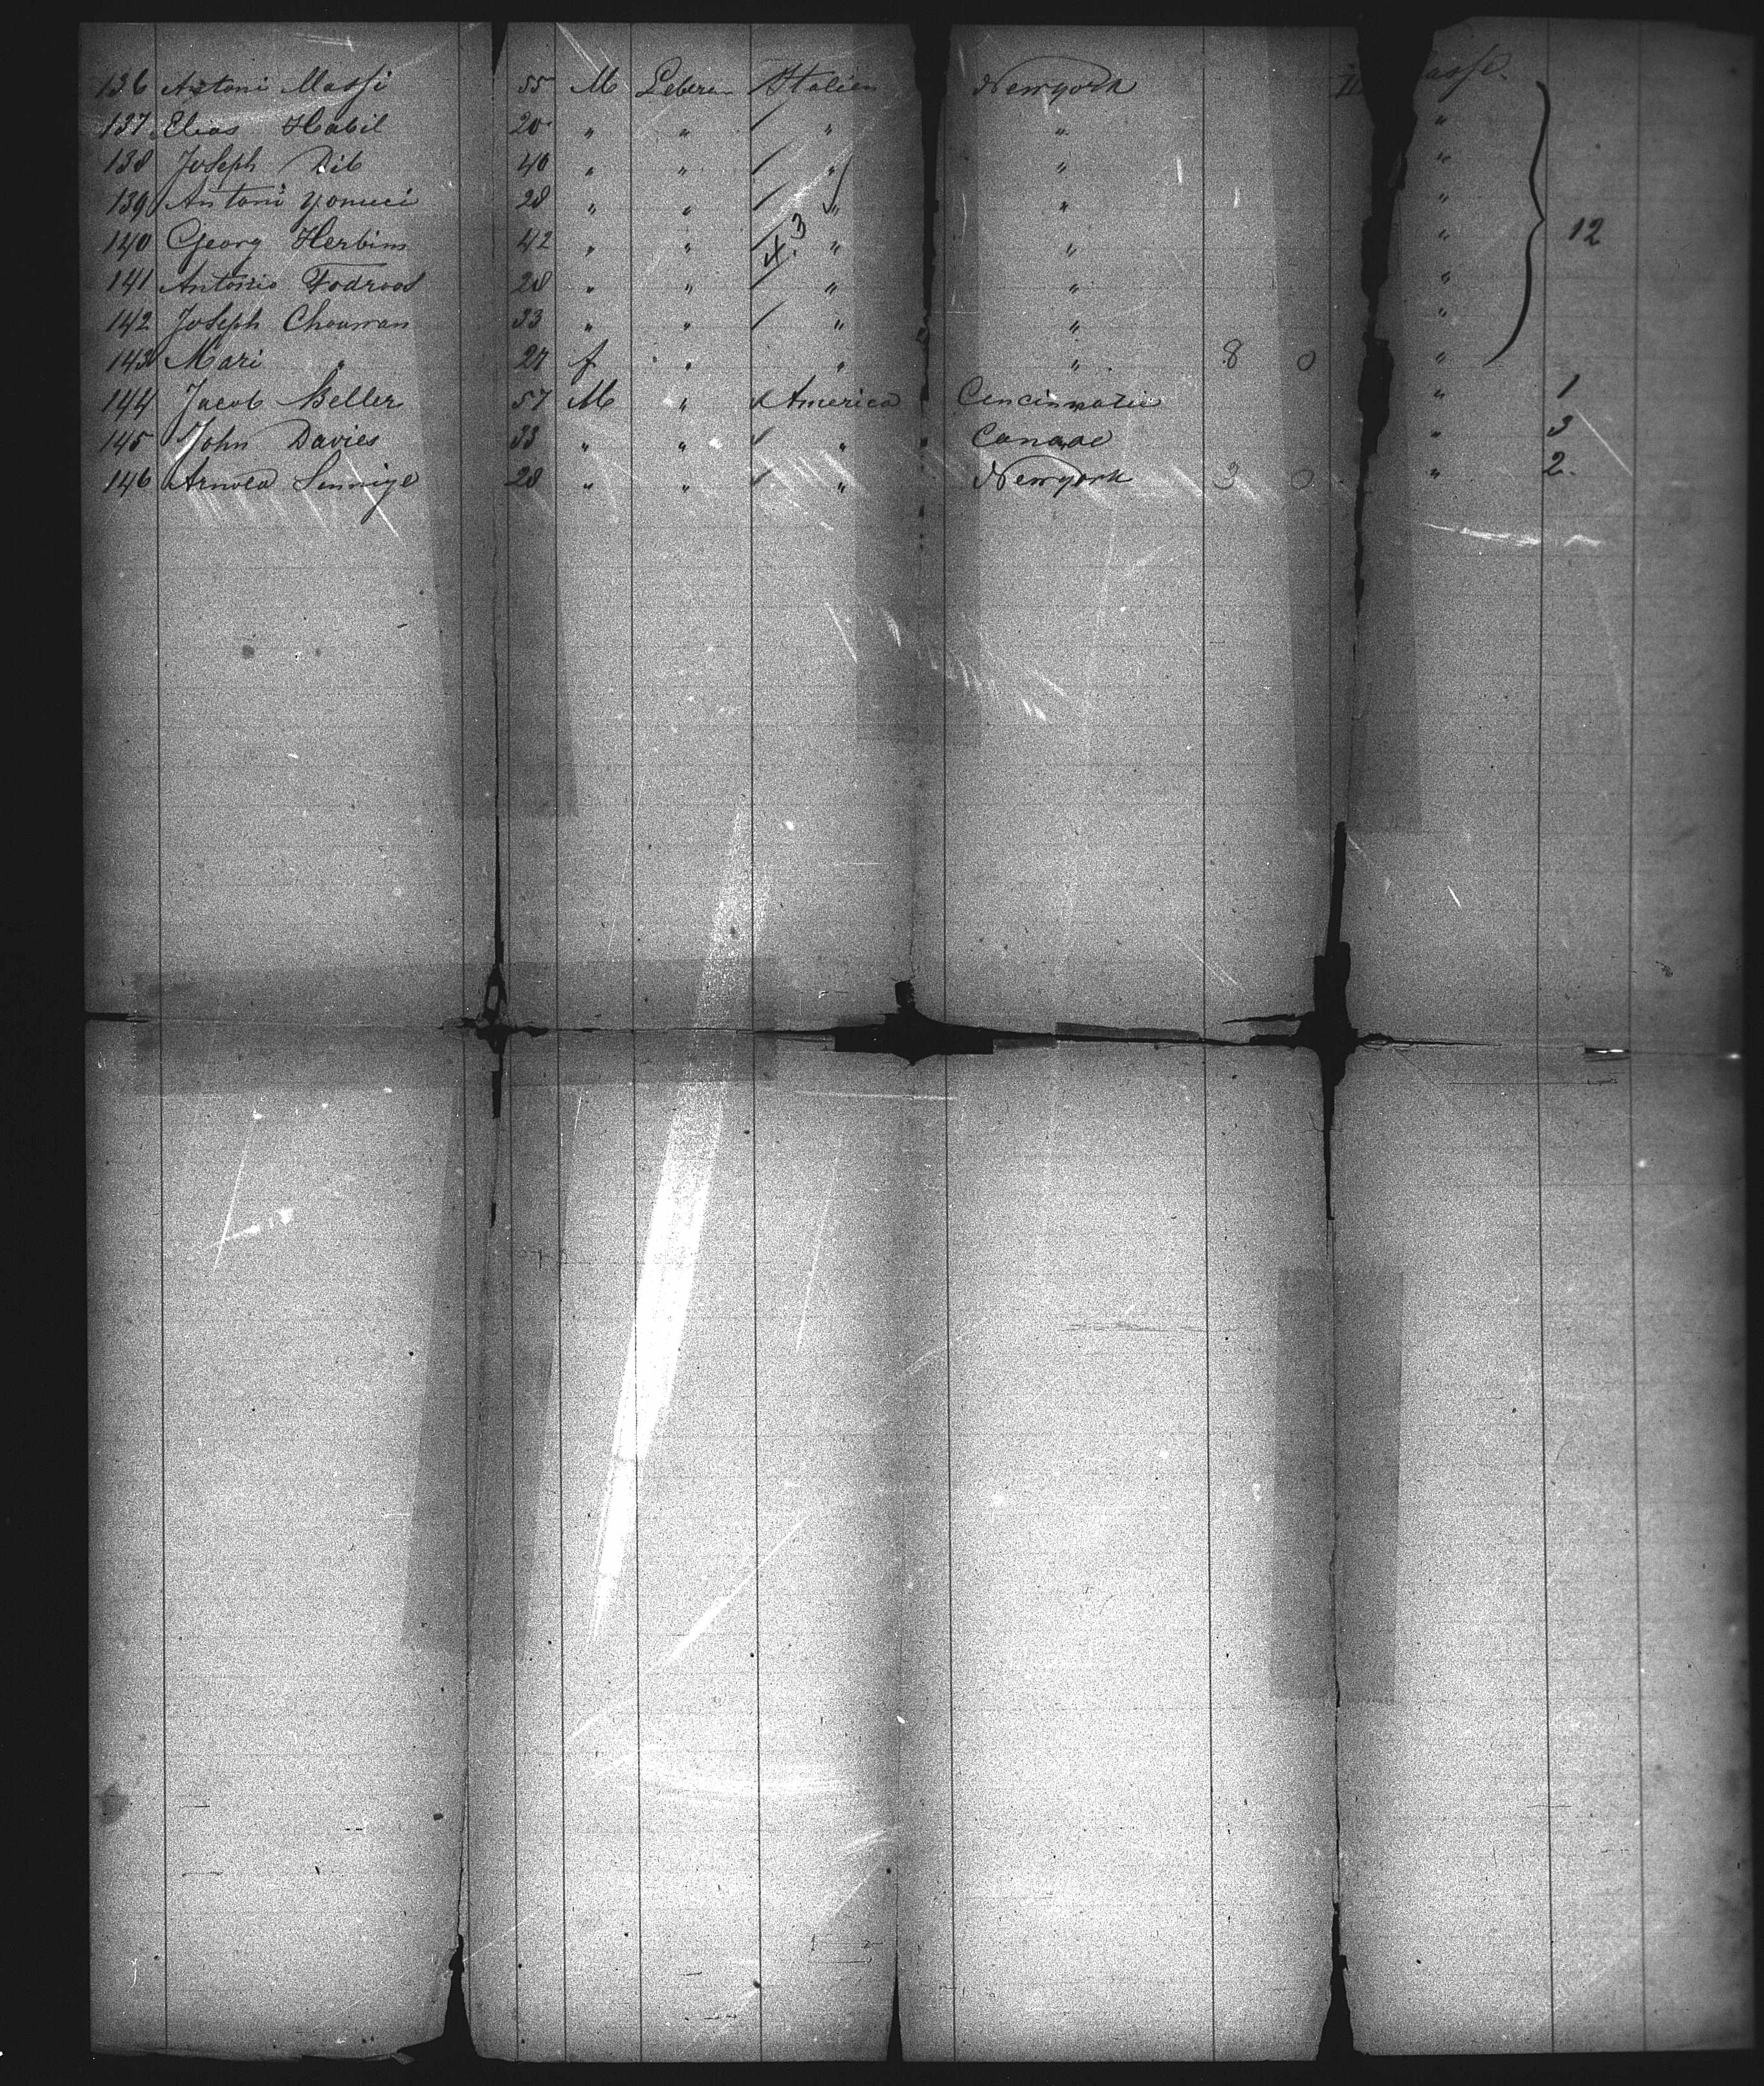 136 Antoni Massi 55 M Leberer Italien Newyork II asse.
137 Elias Habil 20 " " / " " "
138 Joseph Dib 40 " " / " " "
139 Antoni Yomeci 28 " " / " " "
140 Georg Herbins 42 " " / " " " 12
141 Antonio 28 " " / " " "
142 Joseph Chouwan 33 " " / " " "
143 Mari " 27 f " " " 8 0 "
144 Jacob Beller 57 M " America Cincinnatie " 1
145 John Davies 33 " " " Canada " 3
146 Arnold Sennige 28 " " " Newyork 3 0 " 2.